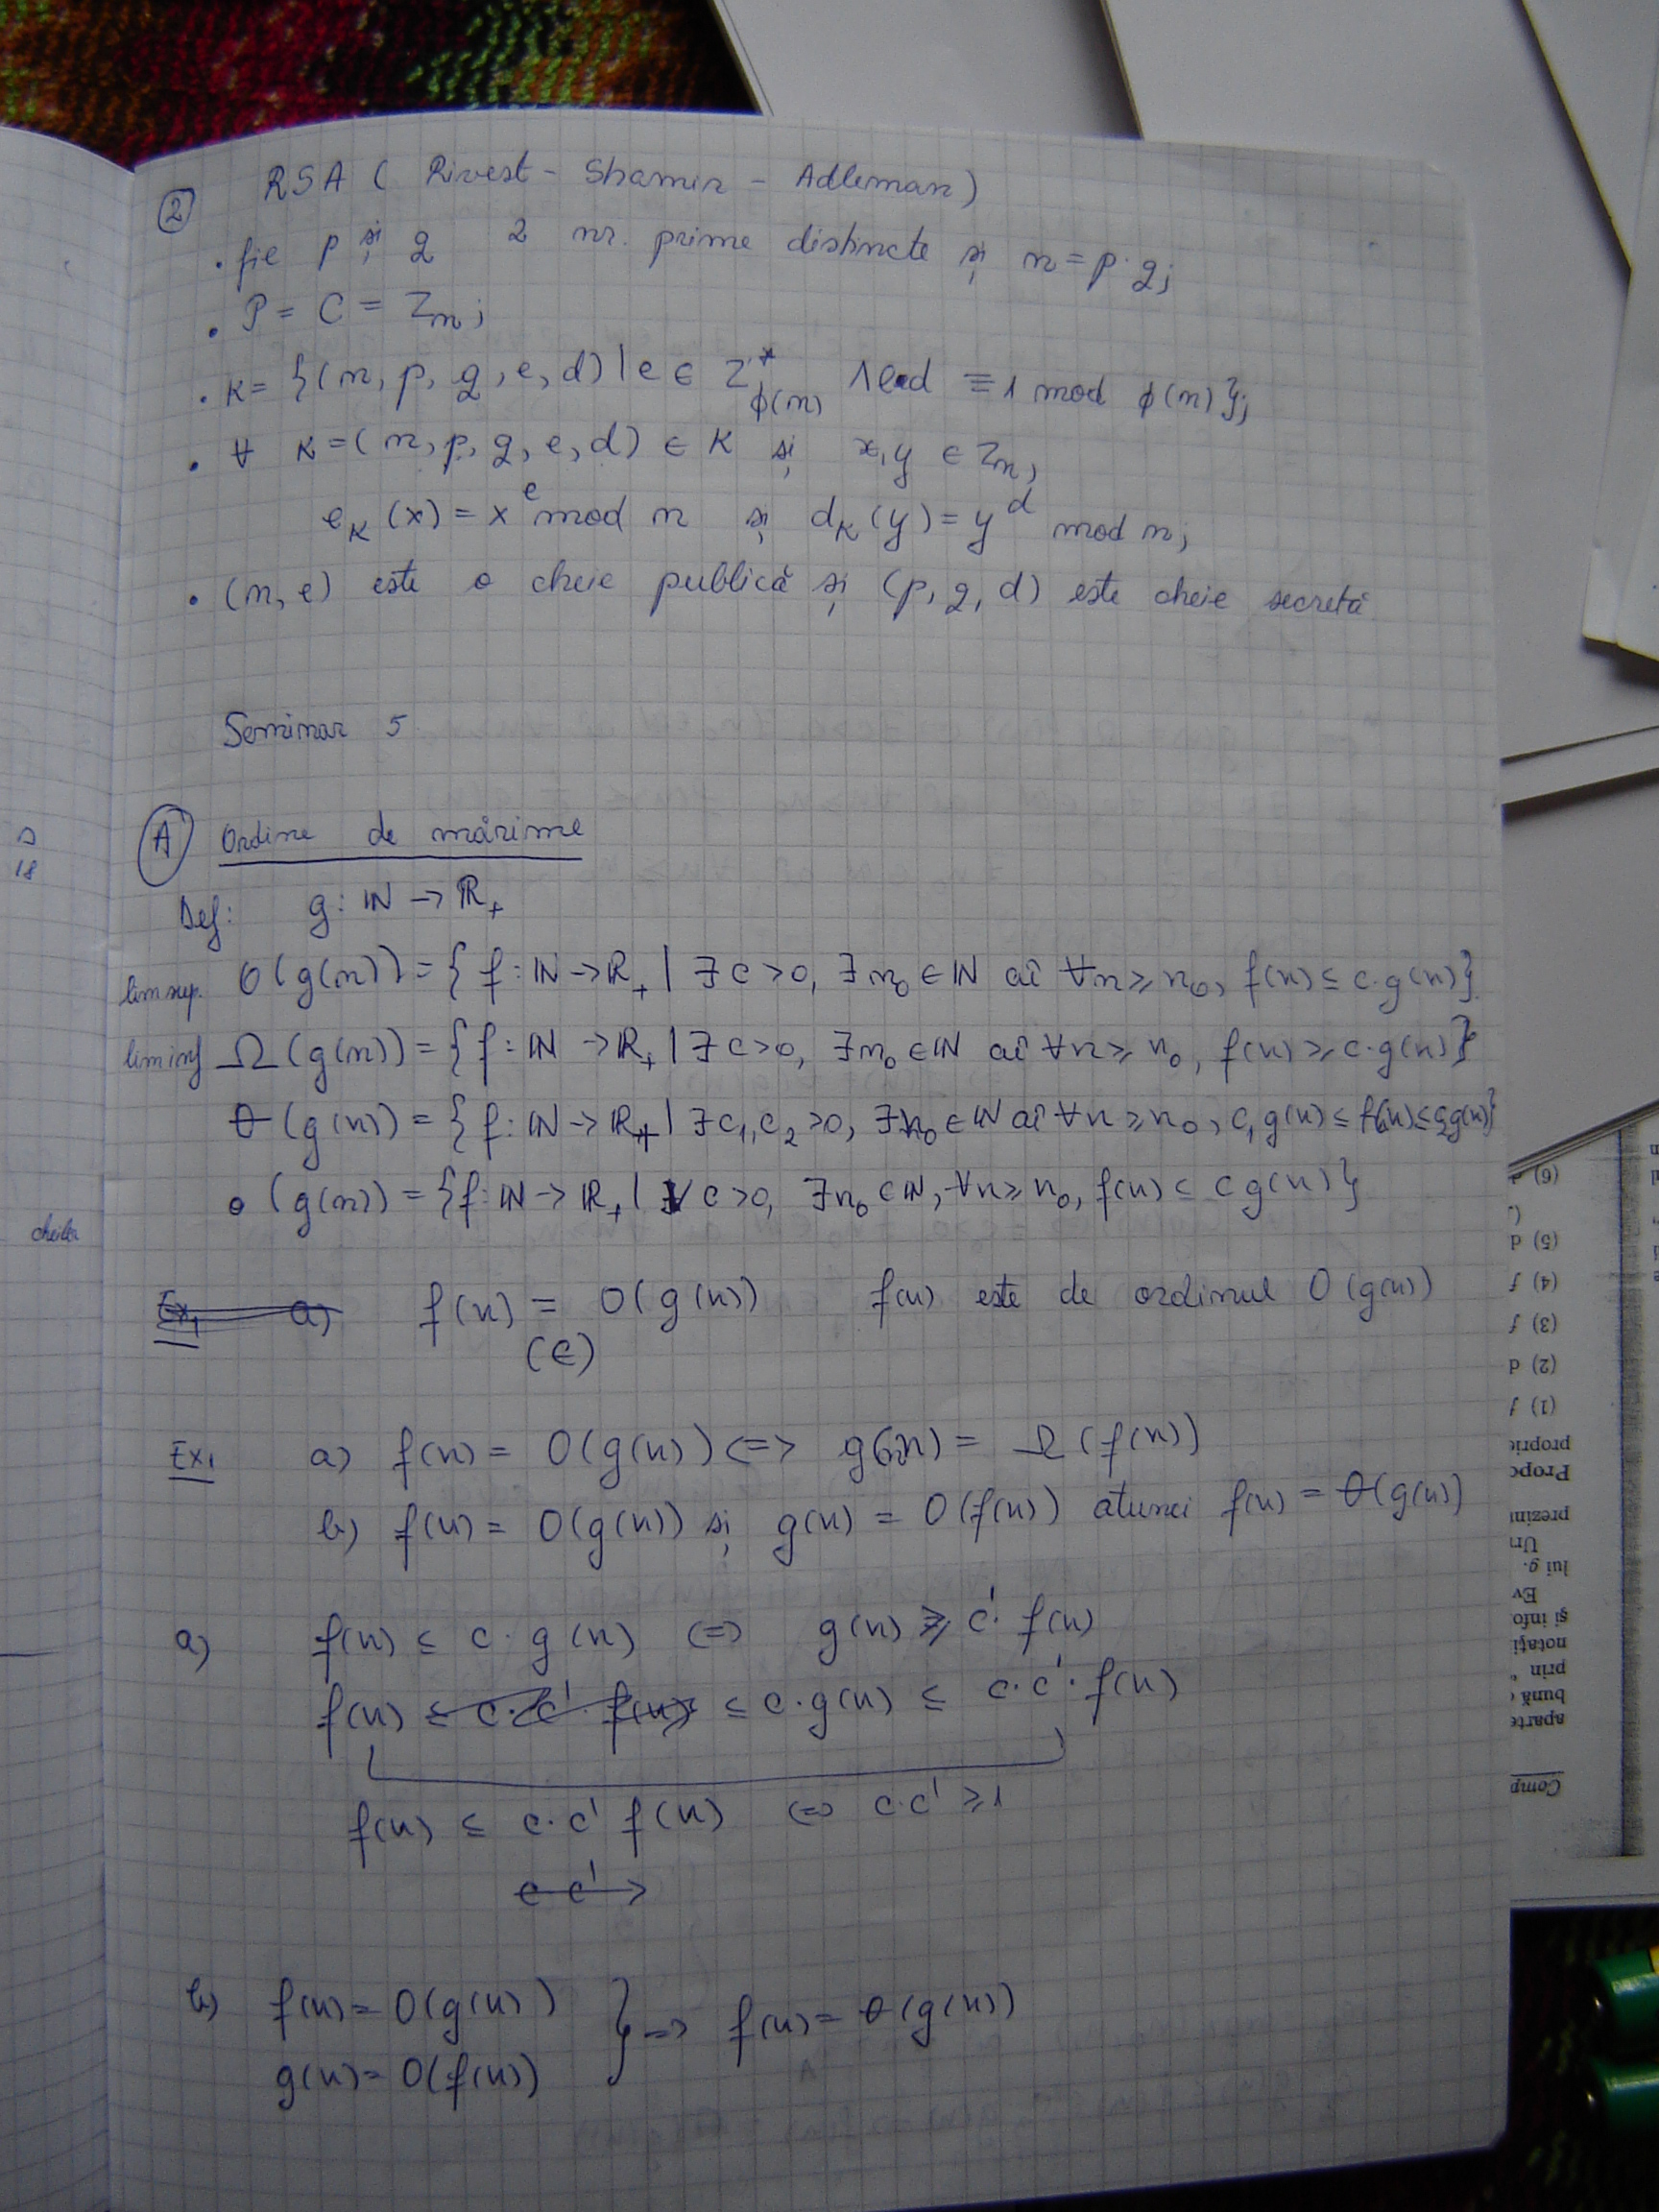 ② RSA ( Rivest - Shamir - Adleman )
• fie p și q 2 nr. prime distincte și n = p·q;
• P = C = Zn;
• K = {(n, p, q, e, d) | e ∈ Z*ϕ(n) ∧ ed ≡ 1 mod ϕ(n)};
• ∀ K = (n, p, q, e, d) ∈ K și x, y ∈ Zn,
eK(x) = x^e mod n și dK(y) = y^d mod n;
• (n, e) este o cheie publică și (p, q, d) este cheie secretă
Seminar 5
Ⓐ Ordine de mărime
Def: g: ℕ → ℝ+
lim sup. O(g(n)) = { f: ℕ → ℝ+ | ∃ c > 0, ∃ n0 ∈ ℕ aî ∀n ⩾ n0, f(n) ≤ c·g(n)}
lim inf Ω(g(n)) = {f: ℕ → ℝ+ | ∃ c > 0, ∃ n0 ∈ ℕ aî ∀n ⩾ n0, f(n) ⩾ c·g(n)}
θ(g(n)) = {f: ℕ → ℝ+ | ∃ c1, c2 > 0, ∃ n0 ∈ ℕ aî ∀n ⩾ n0, c1 g(n) ≤ f(n) ≤ c2 g(n)}
o(g(n)) = {f: ℕ → ℝ+ | ∀ c > 0, ∃ n0 ∈ ℕ, ∀n ⩾ n0, f(n) ≤ c g(n)}
Ex1 a) f(n) = O(g(n)) f(n) este de ordinul O(g(n))
(∈)
Ex1 a) f(n) = O(g(n)) <=> g(n) = Ω(f(n))
b) f(n) = O(g(n)) și g(n) = O(f(n)) atunci f(n) = θ(g(n))
a) f(n) ≤ c · g(n) <=> g(n) ⩾ c'· f(n)
f(n) ≤ c·c'· f(n) ≤ c·g(n) ≤ c·c'·f(n)
f(n) ≤ c·c' f(n) <=> c·c' ⩾ 1
c c' →
b) f(n) = O(g(n)) } => f(n) = θ(g(n))
g(n) = O(f(n))
18
cheilor
(6)
(5) d
(4) f
(3) f
(2) d
(1) f
propric
Propo
prezint
Un
lui g.
Ev
și info
notați
prin
bună
aparte
Comp